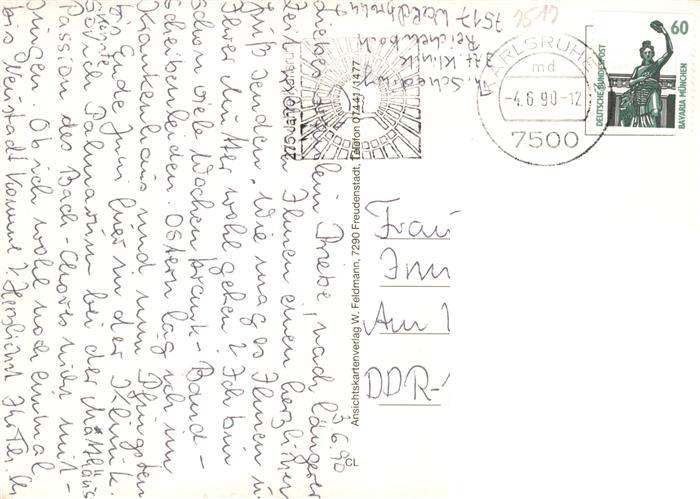 3.6.90
Liebes Fräulein Priebe, nach längerer
Zeit Ihnen einen herzlichen
Gruß senden, wie mag es Ihnen u.
Ihrer Mutter wohl gehen? Ich bin
schon viele Wochen krank - Band-
scheibenleiden. Ostern lag ich im
Krankenhaus und nun Pfingsten
bis Ende Juni hier in der Klinik.
So viel Palmarum bei der Matthäus
Passion des Bach-Chores nicht mit-
singen. Ob ich wohl noch einmal
bis Neustadt komme? Herzlichst Ihr
H. Scheding
Klinik
Reichenbach
7517 Waldbronn
7517
Ansichtskartenverlag W. Feldmann, 7290 Freudenstadt, Telefon 07441/1477
CL
KARLSRUHE
md
-4.6.90-12
7500
60
DEUTSCHE BUNDESPOST
BAVARIA MÜNCHEN
Frau
Am
DDR-